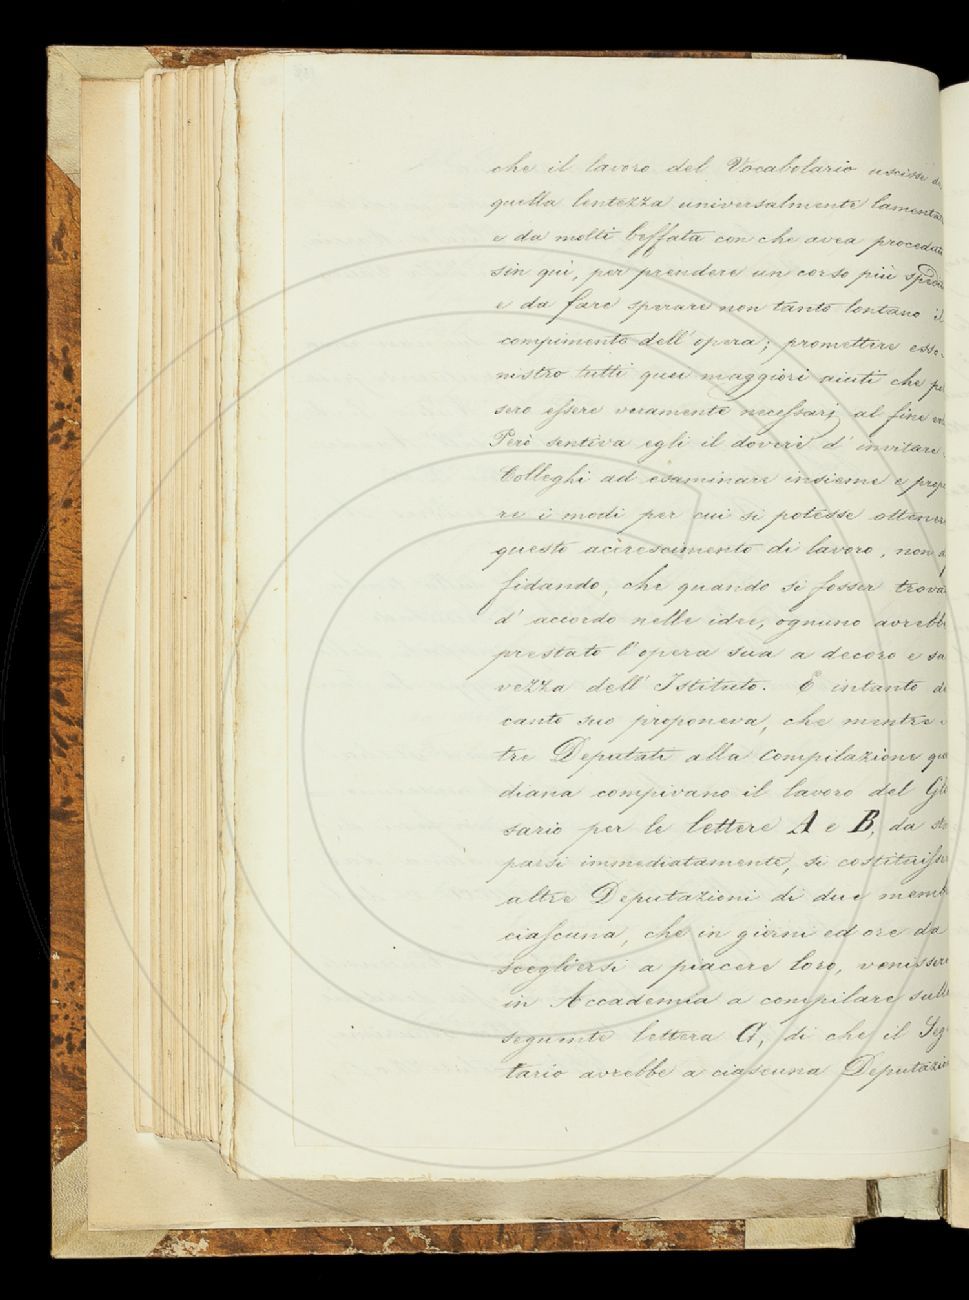 che il lavoro del Vocabolario uscisse da
quella lentezza universalmente lamentat
e da molti beffata con che avea procedut
sin quì, per prendere un corso più spedi
e da fare sperare non tanto lontano il
compimento dell'opera; promettere esso
nistro tutti quei maggiori aiuti che po
sero essere veramente necessarj al fine
Però sentiva egli il dovere d'invitare
Colleghi ad esaminare insieme e propo
re i modi per cui si potesse ottener
questo accrescimento di lavoro, non
fidando, che quando si fosser trova
d'accordo nelle idee, ognuno avrebb
prestato l'opera sua a decoro e sa
vezza dell'Istituto. E intanto da
canto suo proponeva, che mentre
tre Deputati alla compilazione quo
diana compivano il lavoro del Glo
sario per le lettere A e B, da sta
parsi immediatamente, si costituisse
altre Deputazioni di due memb
ciascuna, che in giorni ed ore da
scegliersi a piacere loro, venisser
in Accademia a compilare sulla
seguente lettera C, di che il Seg
tario avrebbe a ciascuna Deputazio